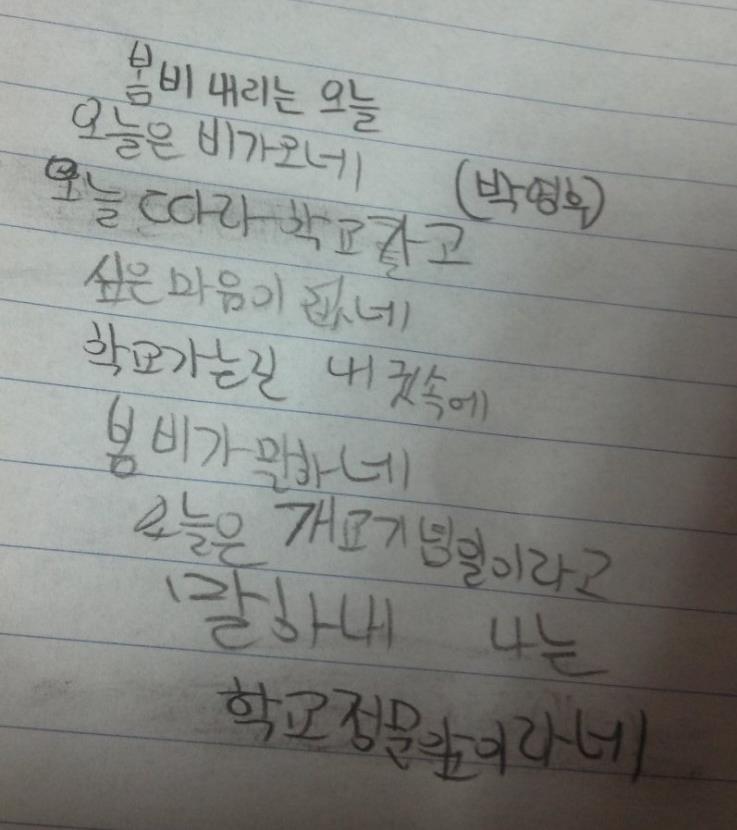 봄비 내리는 오늘
오늘은 비가오네
(박영후)
오늘 따라 학교가고
싶은 마음이 없네
학교가는길 내 귓속에
봄비가 말하네
오늘은 개교기념일이라고
말하내 나는
학교정문앞이라네